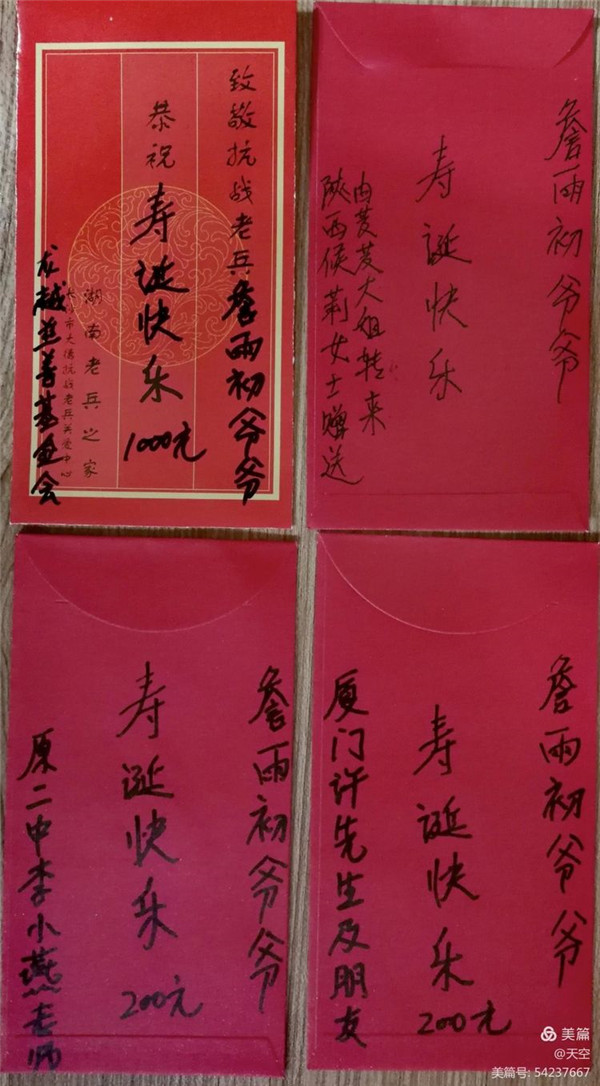 致敬抗战老兵詹雨初爷爷
恭祝寿诞快乐
1000元
湖南老兵之家
长沙市大德抗战老兵关爱中心
龙越慈善基金会
詹雨初爷爷
寿诞快乐
由芰芰大姐转来
陕西侯莉女士赠送
詹雨初爷爷
寿诞快乐
200元
原二中李小燕老师
詹雨初爷爷
寿诞快乐
200元
厦门许先生及朋友
美篇
@天空
美篇号: 54237667